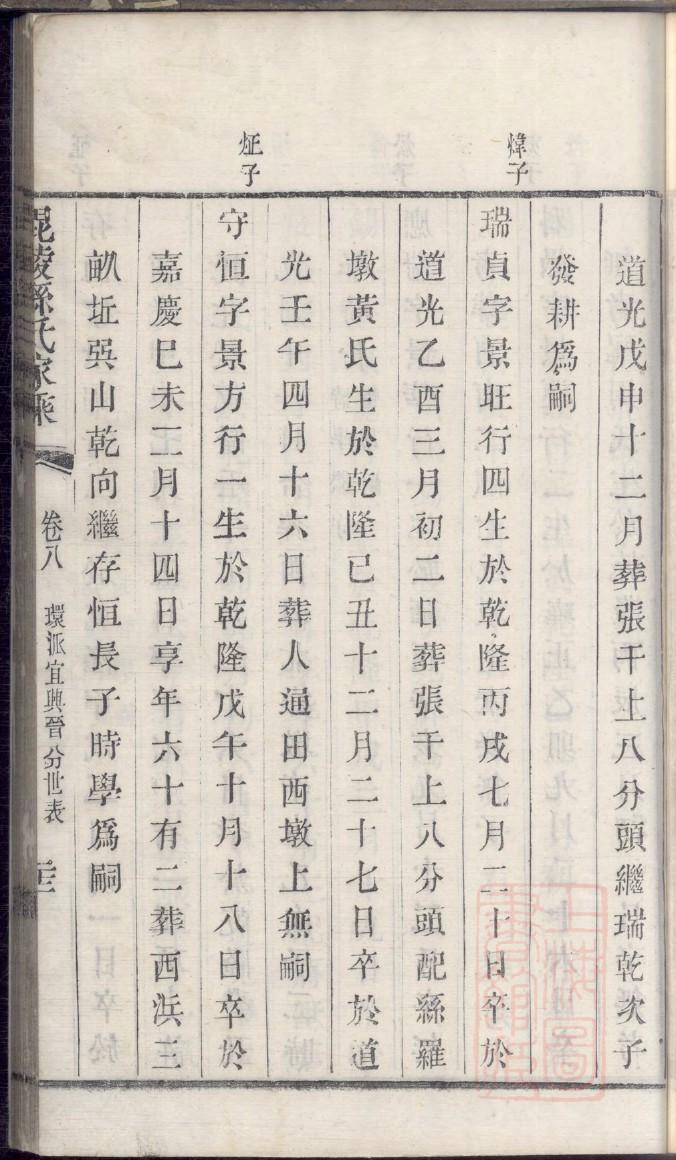 道光戊申十二月葬張干上八分頭繼瑞乾次子
發耕爲嗣
煒子
瑞貞字景旺行四生於乾隆丙戌七月二十日卒於
道光乙酉三月初二日葬張干上八分頭配孫羅
墩黃氏生於乾隆己丑十二月二十七日卒於道
光壬午四月十六日葬人逼田西墩上無嗣
炡子
守恒字景方行一生於乾隆戊午十月十八日卒於
嘉慶巳未二月十四日享年六十有二葬西浜三
畝坵巽山乾向繼存恒長子時學爲嗣
毘陵孫氏家乘
卷八
環派宜興晉分世表